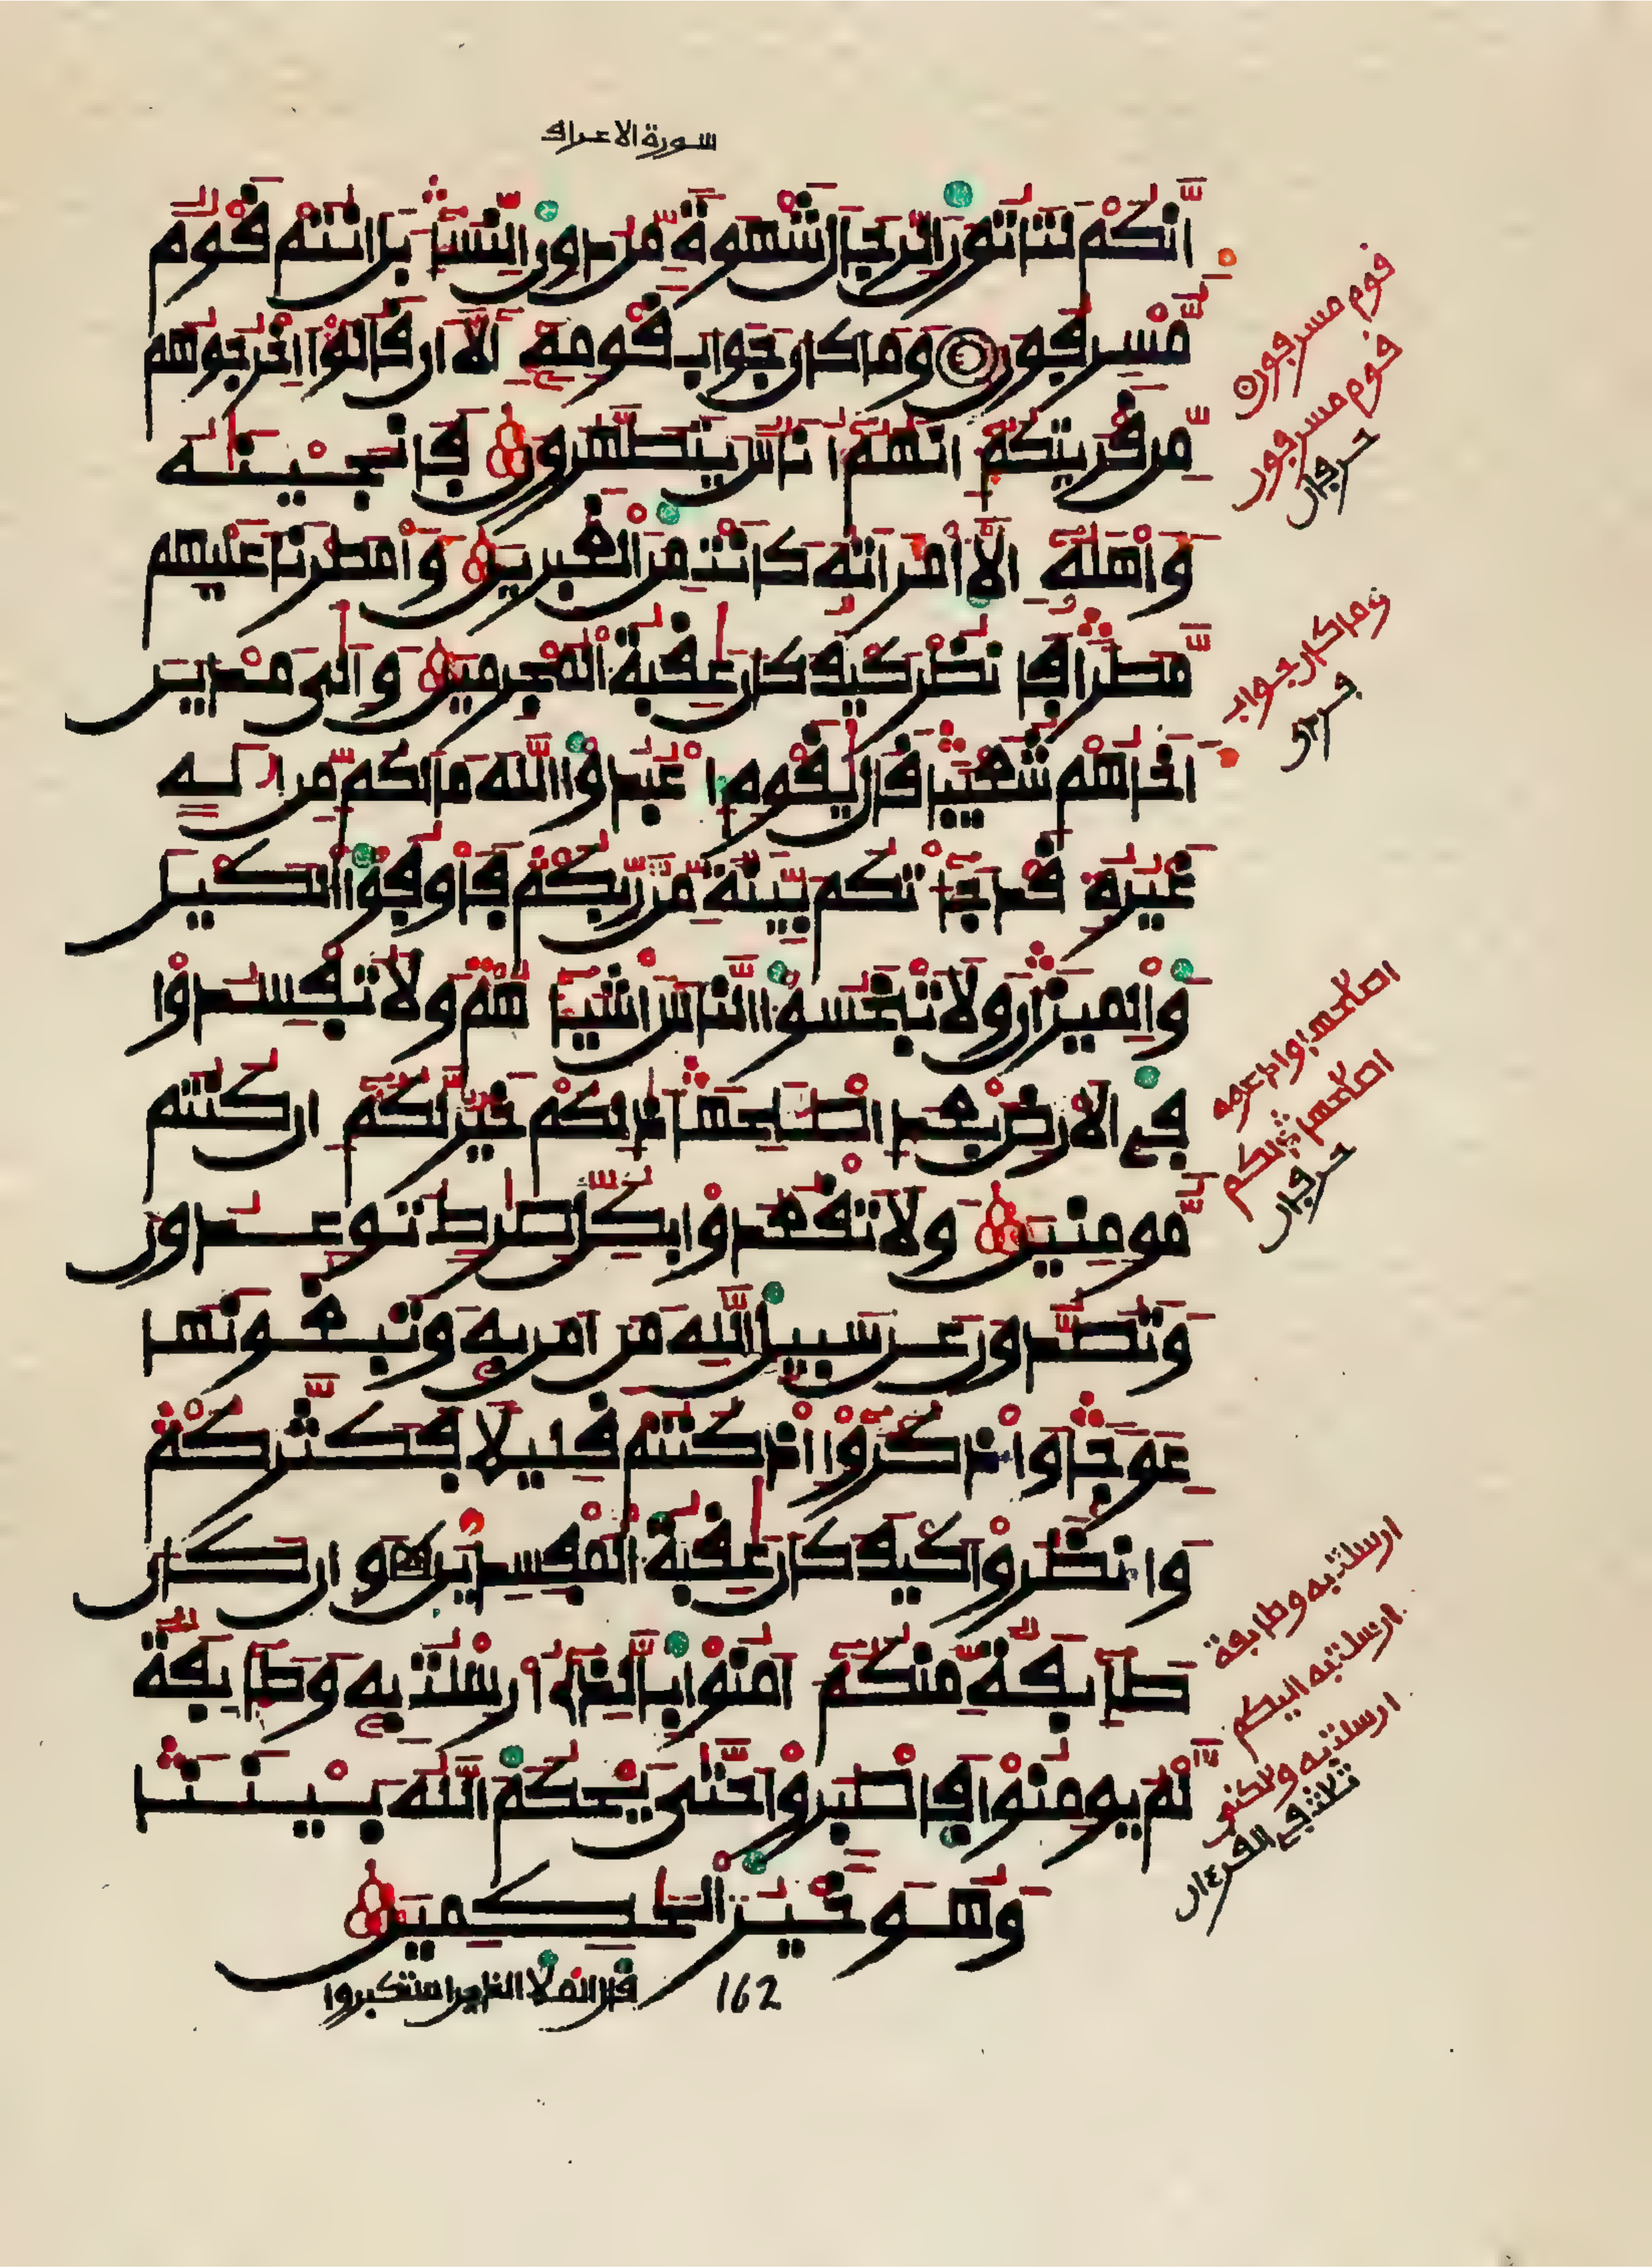 سورة الاعراف
اِنَّكُمْ لَتَاتُونَ الرِّجَالَ شَهْوَةً مِّن دُونِ النِّسَآءِ بَلَ انتُمْ قَوْمٌ
مُّسْرِفُونَ وَمَا كَانَ جَوَابَ قَوْمِهِ إِلَّا أَن قَالُوا أَخْرِجُوهُم
مِّن قَرْيَتِكُمْ إِنَّهُمْ أُنَاسٌ يَتَطَهَّرُونَ فَأَنجَيْنَٰهُ
وَأَهْلَهُ إِلَّا امْرَأَتَهُ كَانَتْ مِنَ الْغَٰبِرِينَ وَأَمْطَرْنَا عَلَيْهِم
مَّطَرًا فَانظُرْ كَيْفَ كَانَ عَٰقِبَةُ الْمُجْرِمِينَ وَإِلَىٰ مَدْيَنَ
أَخَاهُمْ شُعَيْبًا قَالَ يَٰقَوْمِ اعْبُدُوا اللَّهَ مَا لَكُم مِّنِ الَٰهٍ
غَيْرُهُ قَدْ جَآءَتْكُم بَيِّنَةٌ مِّن رَّبِّكُمْ فَأَوْفُوا الْكَيْلَ
وَالْمِيزَانَ وَلَا تَبْخَسُوا النَّاسَ أَشْيَآءَهُمْ وَلَا تُفْسِدُوا
فِي الْأَرْضِ بَعْدَ إِصْلَٰحِهَا ذَٰلِكُمْ خَيْرٌ لَّكُمُ إِن كُنتُم
مُّومِنِينَ وَلَا تَقْعُدُوا بِكُلِّ صِرَٰطٍ تُوعِدُونَ
وَتَصُدُّونَ عَن سَبِيلِ اللَّهِ مَنَ امَنَ بِهِ وَتَبْغُونَهَا
عِوَجًا وَاذْكُرُوا إِذْ كُنتُمْ قَلِيلًا فَكَثَّرَكُمْ
وَانظُرُوا كَيْفَ كَانَ عَٰقِبَةُ الْمُفْسِدِينَ وَإِن كَانَ
طَآئِفَةٌ مِّنكُمُ ءَامَنُوا بِالَّذِي أُرْسِلْتُ بِهِ وَطَآئِفَةٌ
لَّمْ يُومِنُوا فَاصْبِرُوا حَتَّىٰ يَحْكُمَ اللَّهُ بَيْنَنَا
وَهُوَ خَيْرُ الْحَٰكِمِينَ
162
قال الملا الذين استكبروا
قوم مسرفون
قوم مسرفون
حرفان
وما كان جواب
حرفان
اصلاحها وادعوه
اصلاحها ذلكم
حرفان
ارسلت به وطايفة
ارسلت به اليكم
ارسلت به ولكني
ثلاث في القرءان